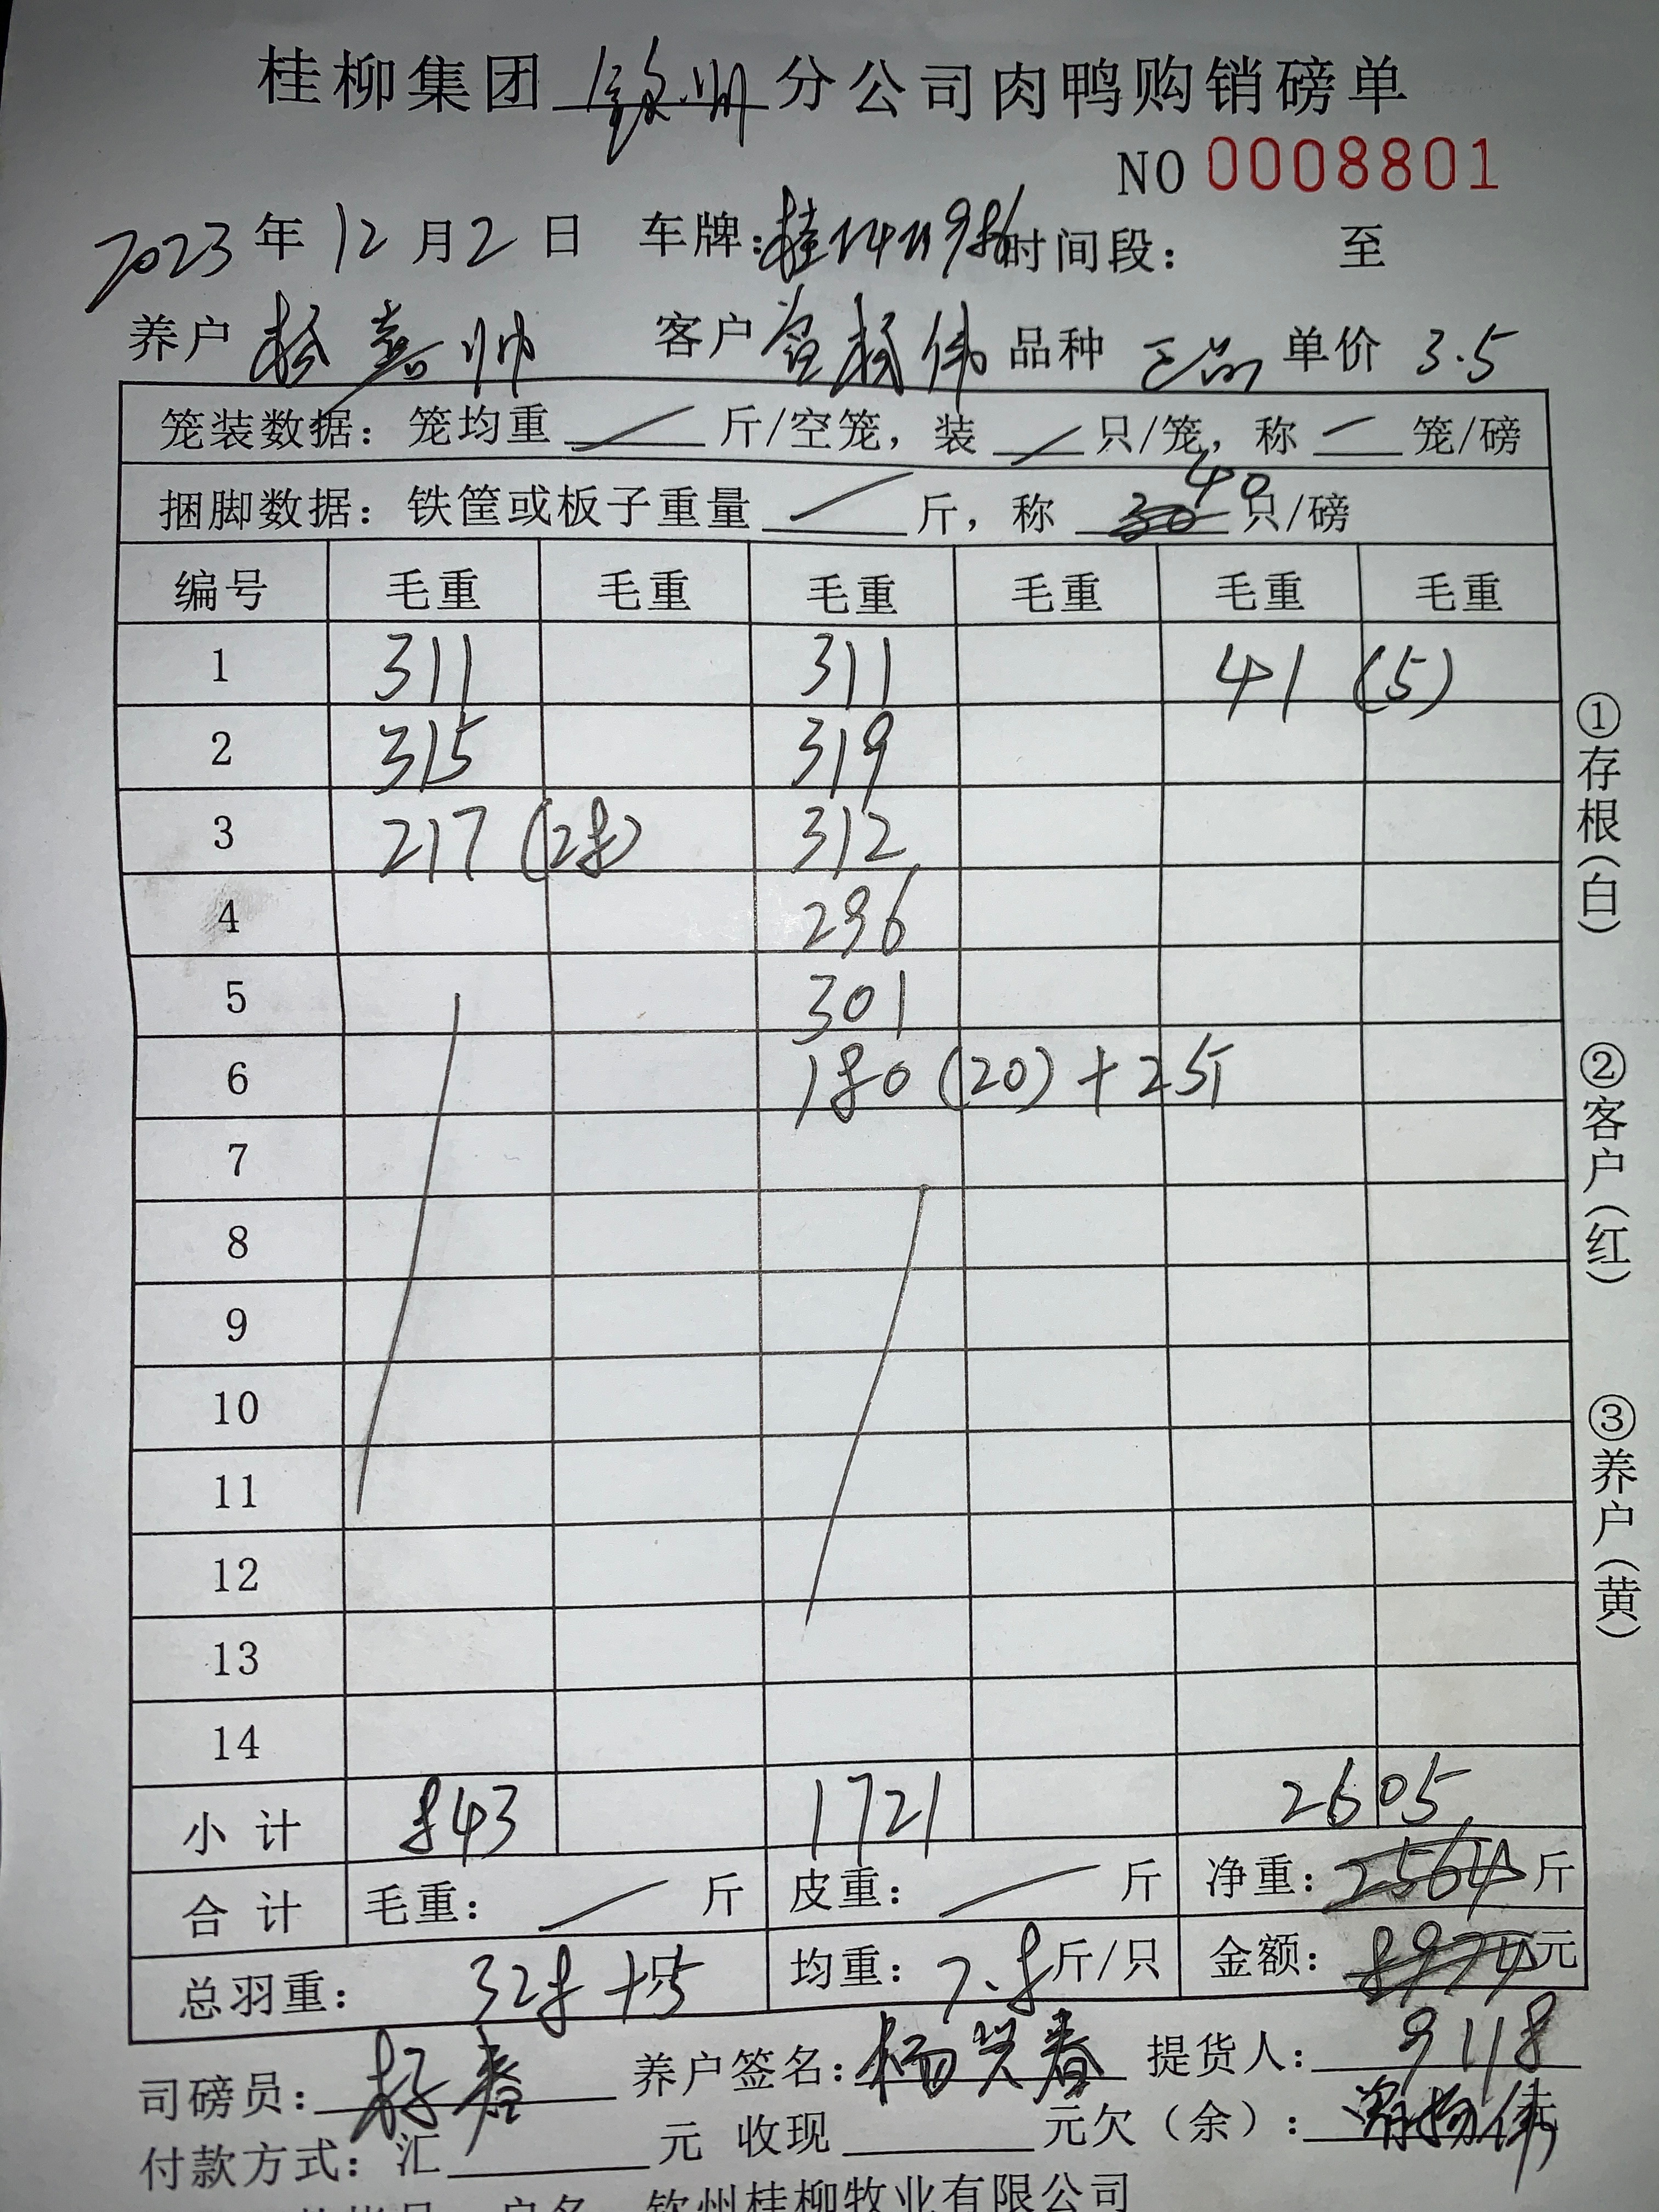 桂柳集团 钦州 分公司肉鸭购销磅单
NO 0008801
2023 年 12 月 2 日 车牌: 时间段: 至
养户 客户 品种 正品 单价 3.5
笼装数据: 笼均重 / 斤/空笼, 装 / 只/笼, 称 / 笼/磅
捆脚数据: 铁筐或板子重量 / 斤, 称 30 40 只/磅
编号 毛重 毛重 毛重 毛重 毛重 毛重
1 311 311 41 (5)
2 315 319
3 217 (28) 312
4 296
5 301
6 180 (20) + 2斤
7
8
9
10
11
12
13
14
小计 843 1721 2605
合计 毛重: / 斤 皮重: / 斤 净重: 2564 斤
总羽重: 328 +5 均重: 7.8 斤/只 金额: 8974 元
9118
司磅员: 养户签名: 杨兴春 提货人:
付款方式: 汇 元 收现 元欠(余): 元
户名 钦州桂柳牧业有限公司
①存根(白)
②客户(红)
③养户(黄)